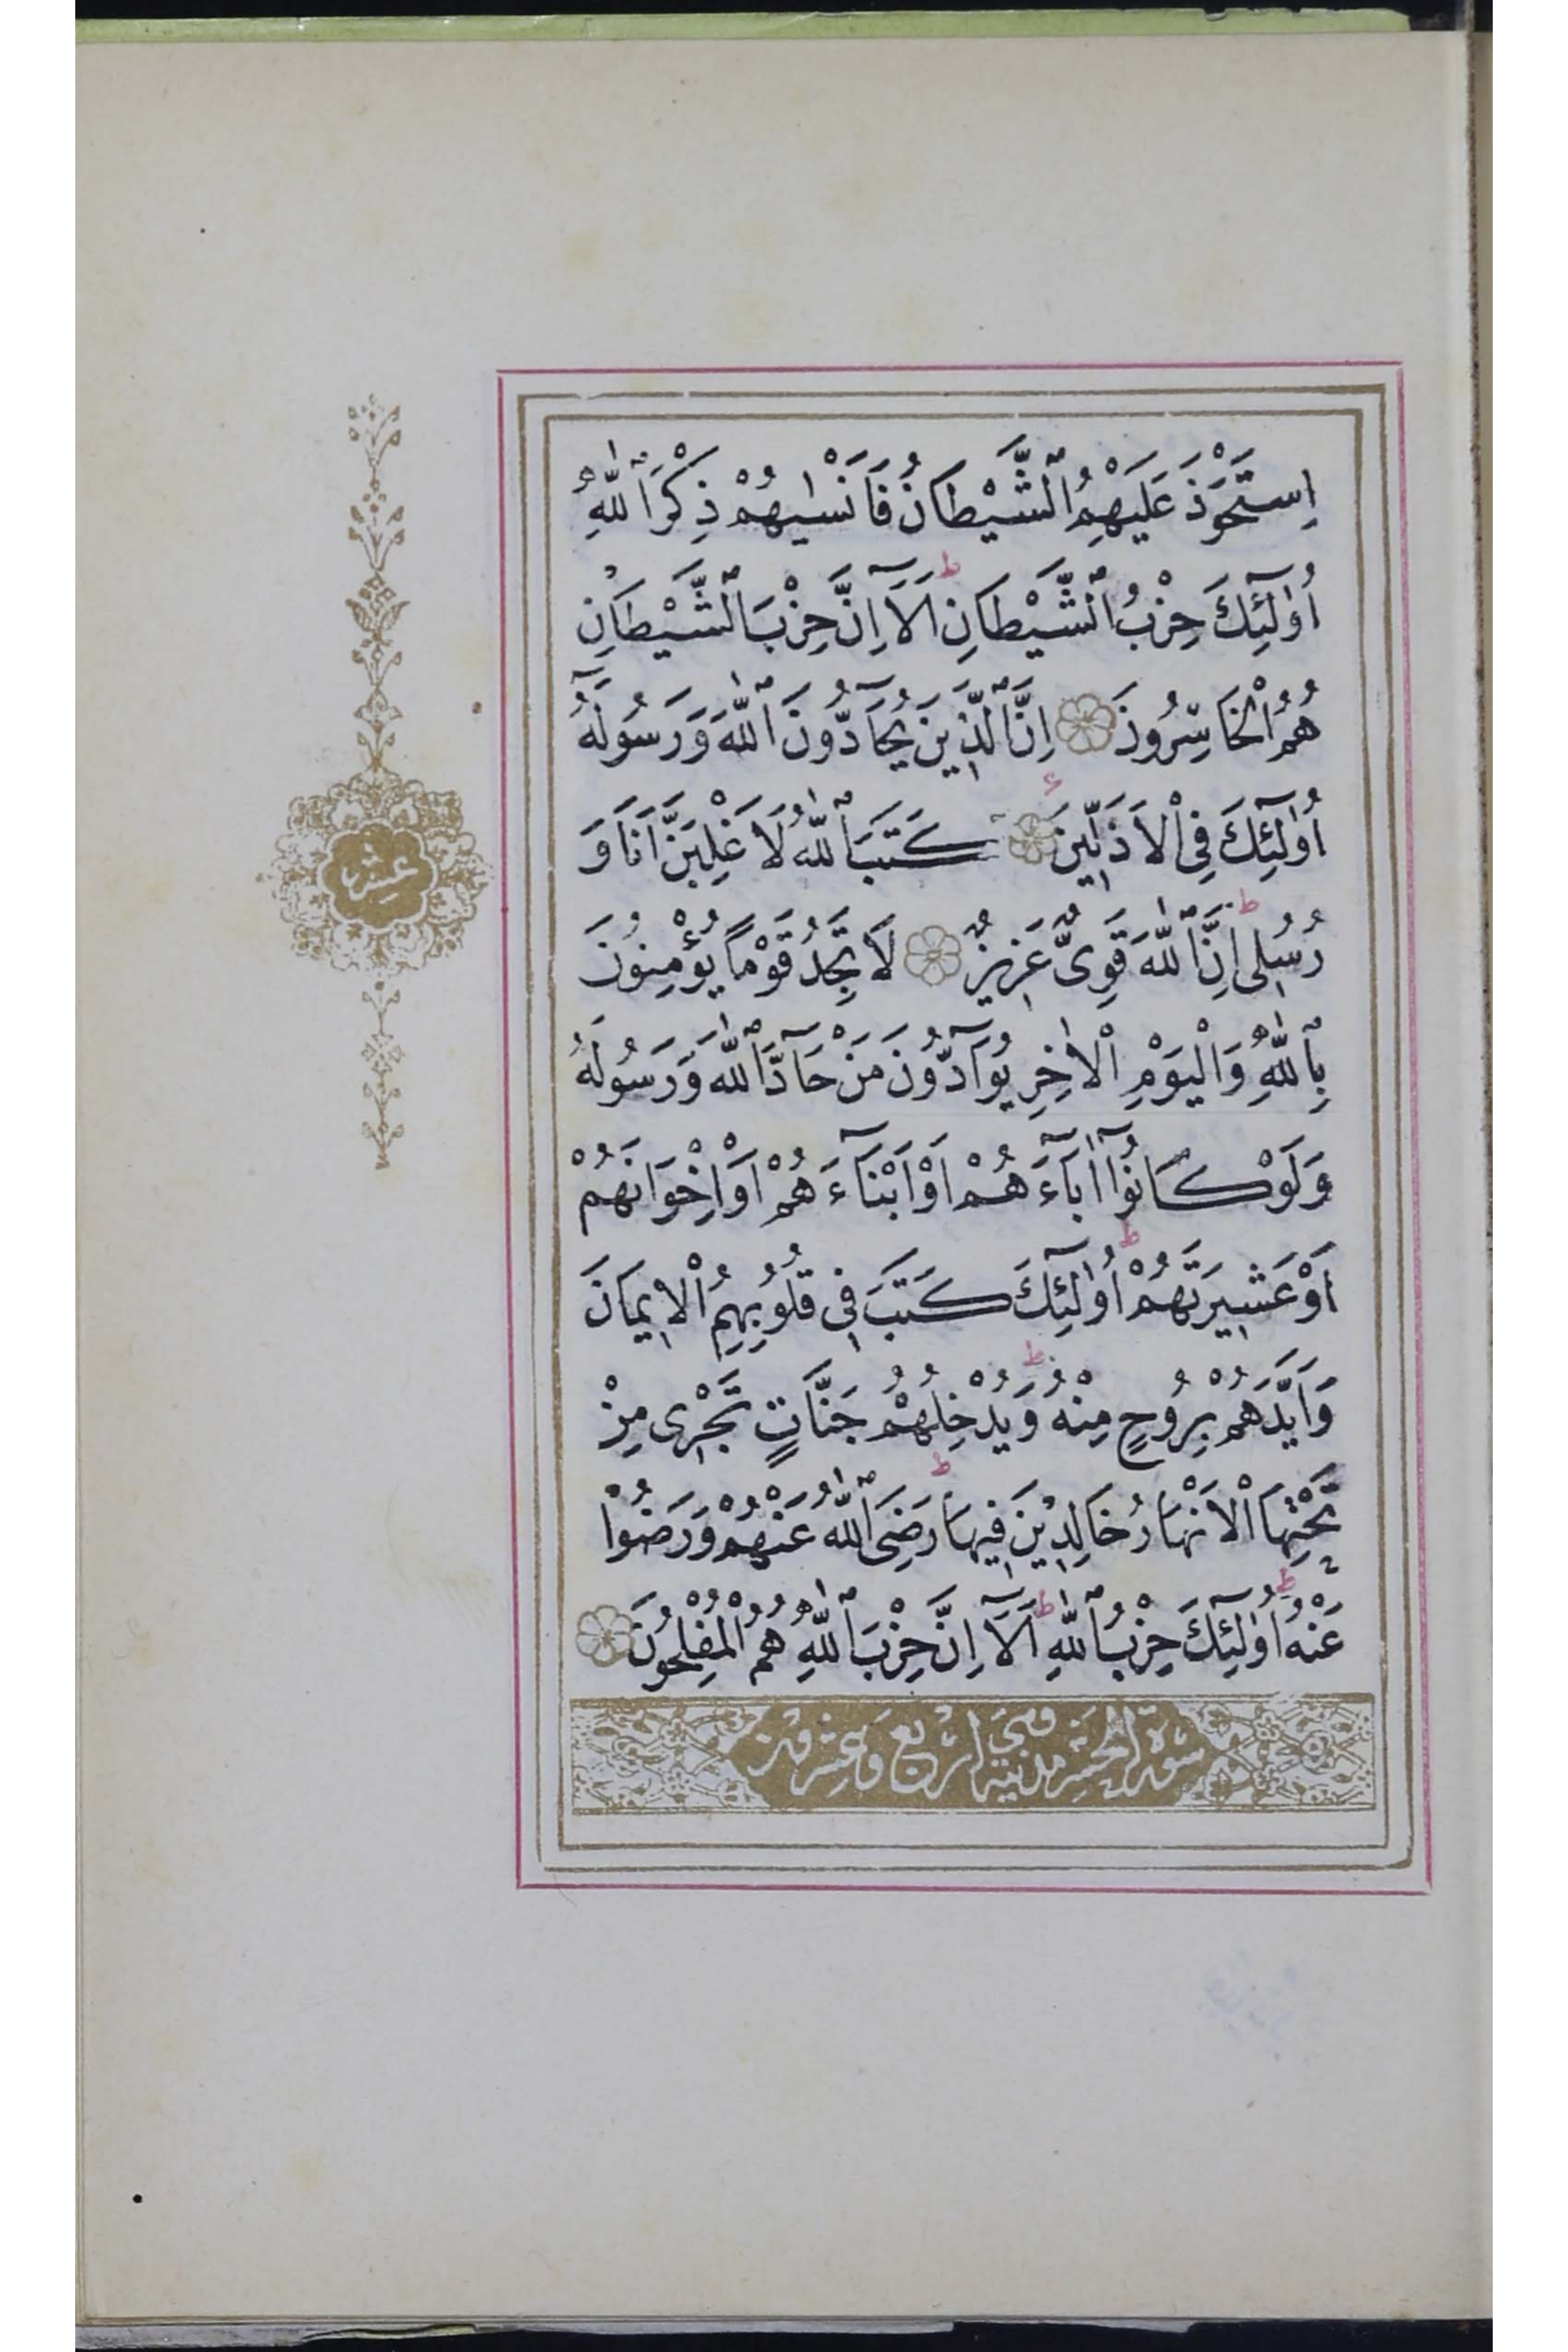 اِسْتَحْوَذَ عَلَيْهِمُ الشَّيْطَانُ فَاَنْسٰيهُمْ ذِكْرَ اللّٰهِ
اُو۬لٰٓئِكَ حِزْبُ الشَّيْطَانِ ط اَلَٓا اِنَّ حِزْبَ الشَّيْطَانِ
هُمُ الْخَاسِرُونَ اِنَّ الَّذِينَ يُحَٓادُّونَ اللّٰهَ وَرَسُولَهُٓ
اُو۬لٰٓئِكَ فِي الْاَذَلِّينَ كَتَبَ اللّٰهُ لَاَغْلِبَنَّ اَنَا وَ
رُسُلِي ط اِنَّ اللّٰهَ قَوِيٌّ عَزِيزٌ لَا تَجِدُ قَوْمًا يُؤْمِنُونَ
بِاللّٰهِ وَالْيَوْمِ الْاٰخِرِ يُوَٓادُّونَ مَنْ حَٓادَّ اللّٰهَ وَرَسُولَهُ
وَلَوْ كَانُٓوا اٰبَٓاءَهُمْ اَوْ اَبْنَٓاءَهُمْ اَوْ اِخْوَانَهُمْ
اَوْ عَشِيرَتَهُمْ ط اُو۬لٰٓئِكَ كَتَبَ فِي قُلُوبِهِمُ الْاِيمَانَ
وَاَيَّدَهُمْ بِرُوحٍ مِنْهُ ط وَيُدْخِلُهُمْ جَنَّاتٍ تَجْرِي مِنْ
تَحْتِهَا الْاَنْهَارُ خَالِدِينَ فِيهَا ط رَضِيَ اللّٰهُ عَنْهُمْ وَرَضُوا
عَنْهُ ط اُو۬لٰٓئِكَ حِزْبُ اللّٰهِ ط اَلَٓا اِنَّ حِزْبَ اللّٰهِ هُمُ الْمُفْلِحُونَ
سورة الحشر مدنية وهي اربع وعشرون
عشر